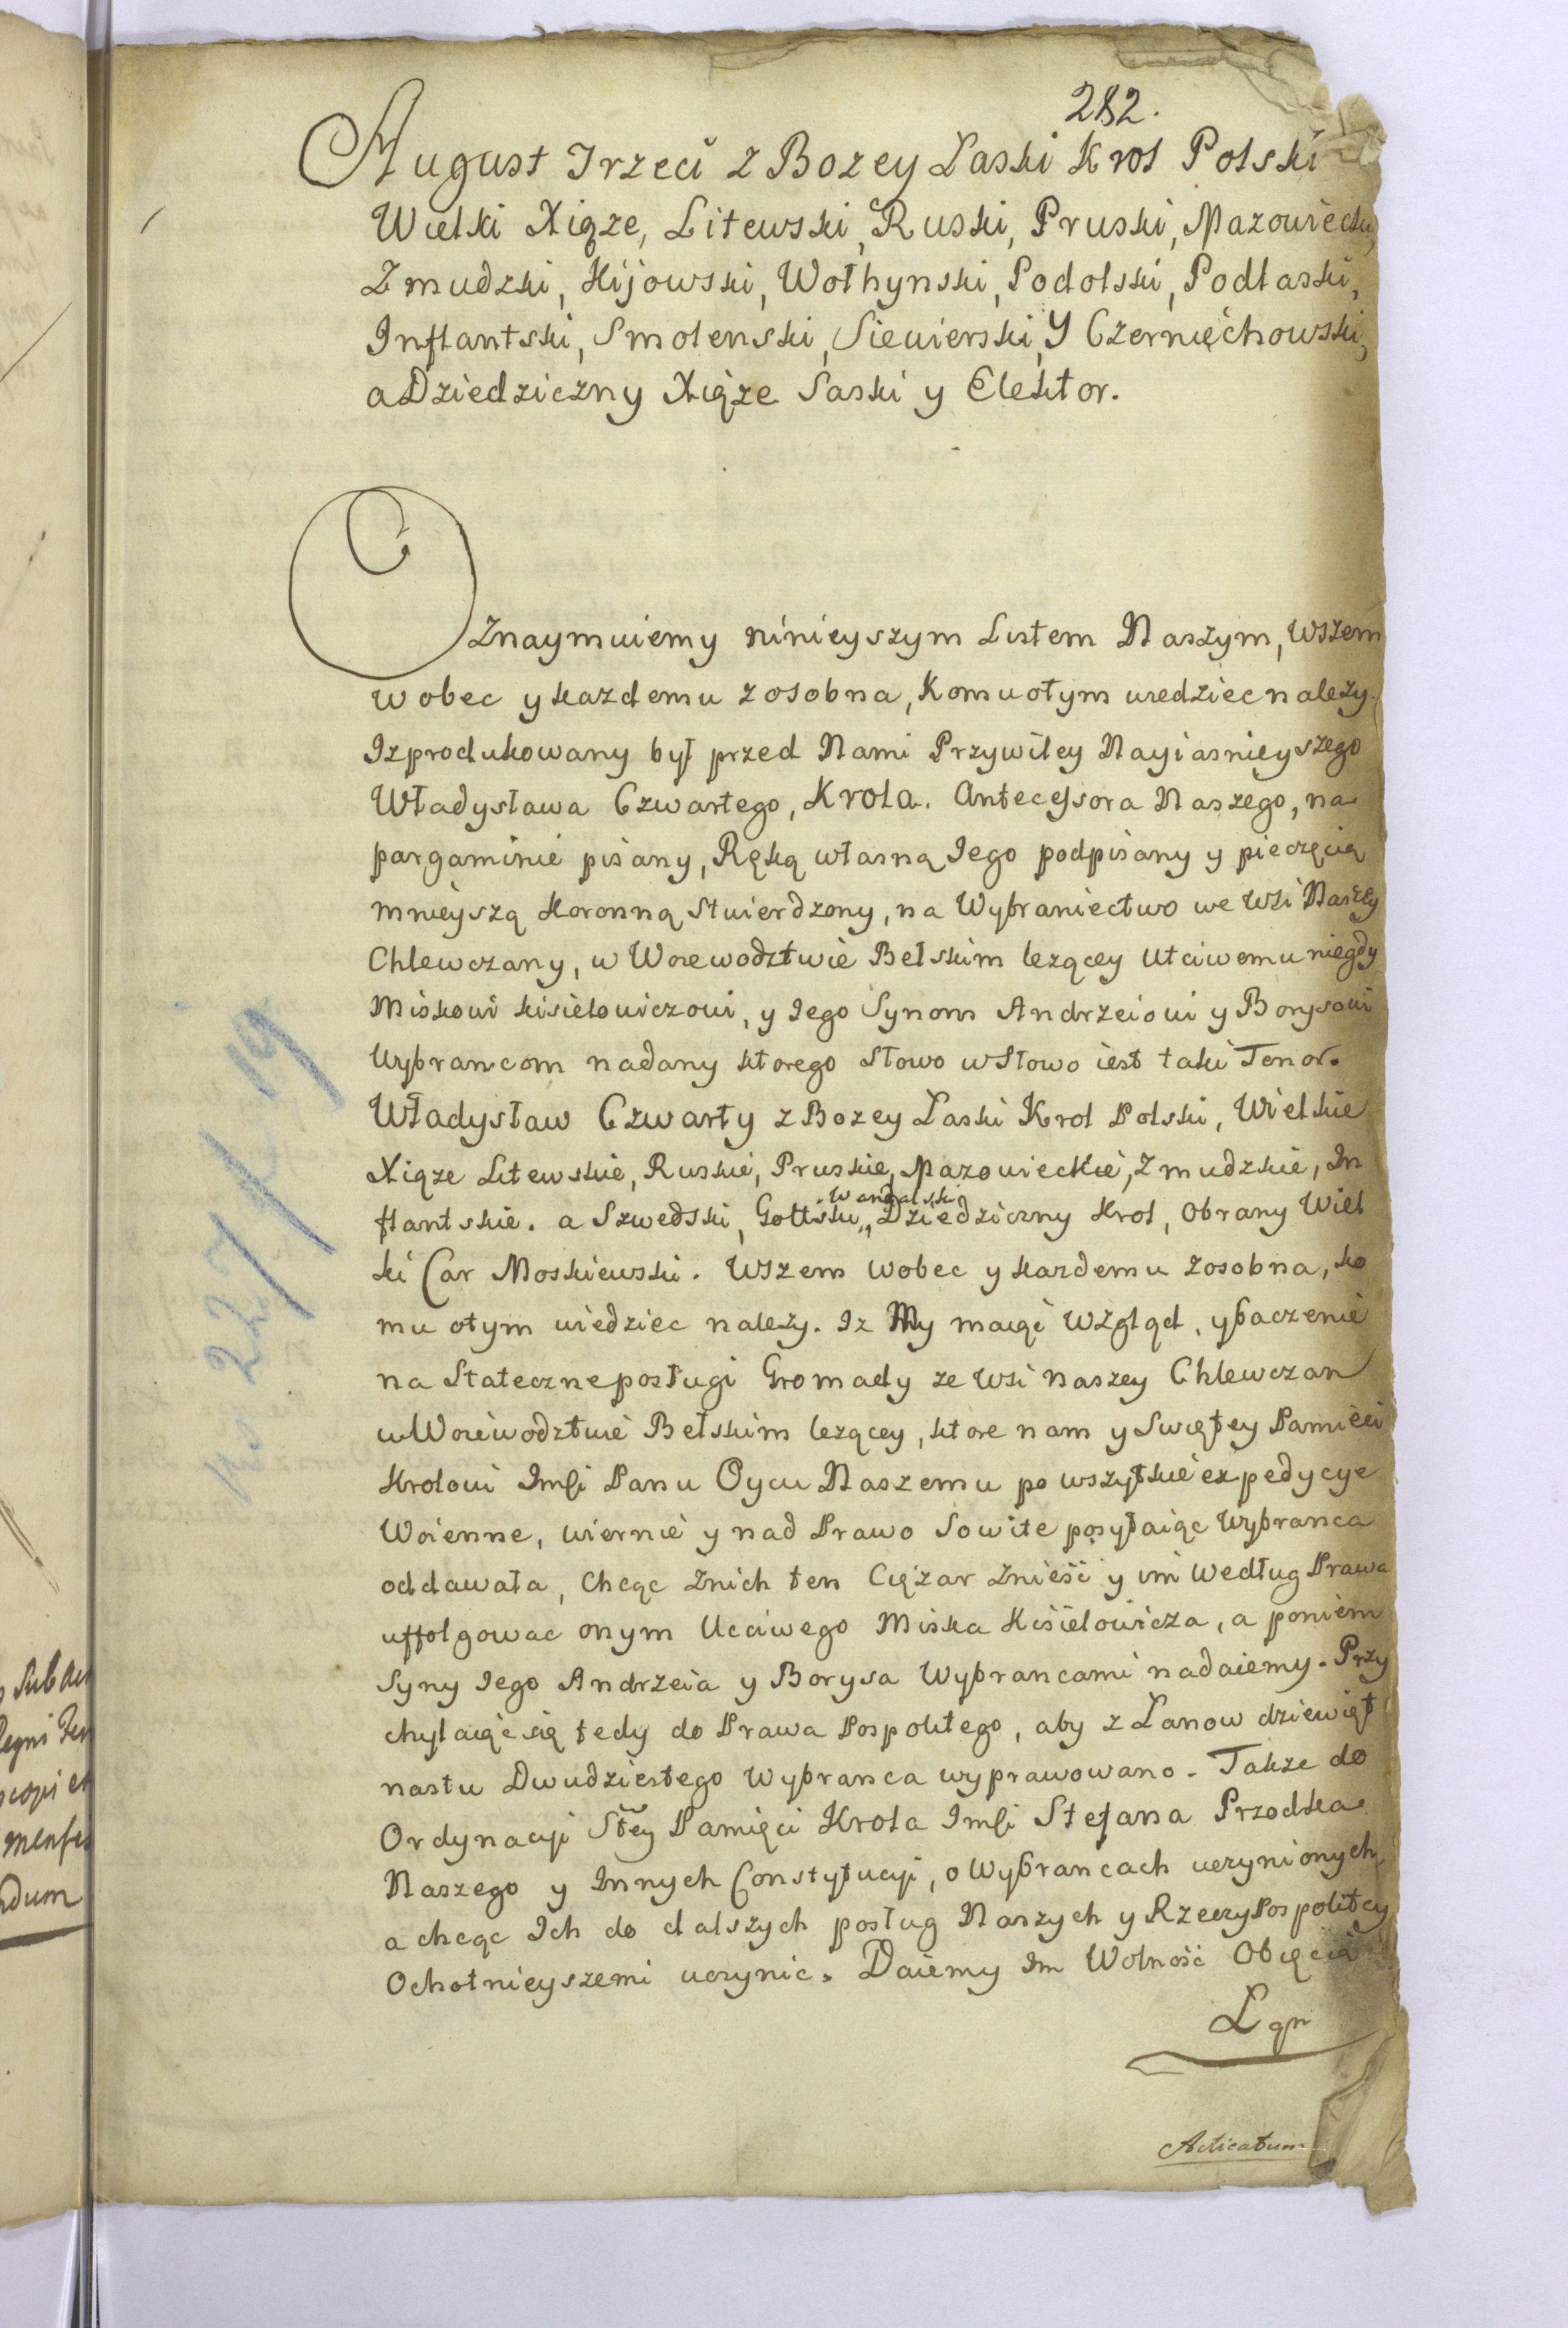 282.
August Trzeci z Bozey Łaski Krol Polski
Wielki Xiąze, Litewski, Ruski, Pruski, Mazowiecki,
Zmudzki, Kijowski, Wołhynski, Podolski, Podlaski,
Inflantski, Smolenski, Siewierski, Y Czernięchowski,
a Dziedziczny Xiąze Saski y Elektor.
Oznaymuiemy ninieyszym Listem Naszym, wszem
w obec y kazdemu z osobna, Komu otym wiedziec nalezy.
Iz produkowany był przed Nami Przywiley Nayiasnieyszego
Władysława Czwartego, Krola. Antecessora Naszego, na
pargaminie pisany, Ręką własną Iego podpisany y pieczęcią
mnieyszą Koronną stwierdzony, na Wybraniectwo we Wsi Naszey
Chlewczany, w Woiewodztwie Bełskim lezącey Utciwemu niegdy
Miskowi kisielowiczowi, y Iego Synom Andrzeiowi y Borysowi
Wybrancom nadany ktorego słowo w słowo iest taki Tenor.
Władysław Czwarty z Bozey Łaski Krol Polski, Wielkie
Xiąze Litewskie, Ruskie, Pruskie, Mazowieckie, Zmudzkie, In
flantskie. a Szwedski, Gottski, Wandalski, Dziedziczny Krol, Obrany Wiel
ki Car Moskiewski. Wszem wobec y kazdemu zosobna, ko
mu otym wiedziec nalezy. Iz My maiąc Wzgląd, y baczenie
na Stateczne posługi Gromady ze wsi naszey Chlewczan
w Woiewodztwie Bełskim lezącey, ktore nam y Swiętey Pamięci
Krolowi Imsi Panu Oycu Naszemu po wszytkie expedycye
Woienne, wiernie y nad Prawo Sowite posyłaiąc Wybranca
oddawała, Chcąc Znich ten Cięzar Znieść y im według Prawa
uffolgowac onym Ucciwego Miska Kisielowicza, a poniem
Syny Iego Andrzeia y Borysa Wybrancami nadaiemy. Przy
chylaiąc się tedy do Prawa Pospolitego, aby z Lanow dziewięt
nastu Dwudziestego Wybranca wyprawowano. Takze do
Ordynacyi Stey Pamięci Krola Imsi Stefana Przodka
Naszego y Innych Constytucyi, o Wybrancach uczynionych,
a chcąc Ich do dalszych posług Naszych y Rzeczypospolitey
Ochotnieyszemi uczynic. Daiemy Im Wolność Obięcia
Łąn
Acticatum